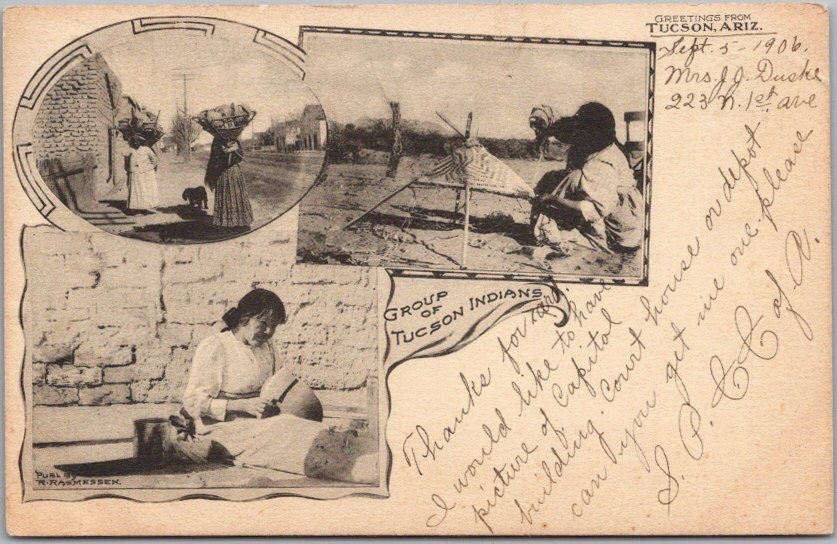 GREETINGS FROM
TUCSON, ARIZ.
Sept. 5 - 1906.
Mrs. J. J. Duske
223 N. 1st ave
GROUP
OF
TUCSON INDIANS
Thanks for card.
I would like to have
picture of Capitol
building. Court house or depot
can you get me one please
S. P. C. C of A.
PUBL. BY
R. RASMESSEN.